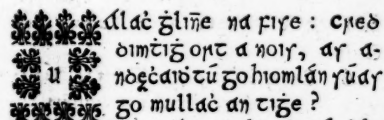 UAlaċ ġlin̄e na fise : Cred
dimtiġ ort a nois, as a-
ndęċaiḋ tú go hiomlán súas
go mullaċ an tiġe ?